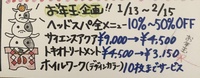 お年玉企画!! 1/13→2/15
ヘッドスパ全メニュー10%~50%OFF
サイエンスアクア¥9,000→¥4,500
トキオトリートメント¥4,500→¥3,150
ホイルワーク(デザインカラー)10枚までサービス